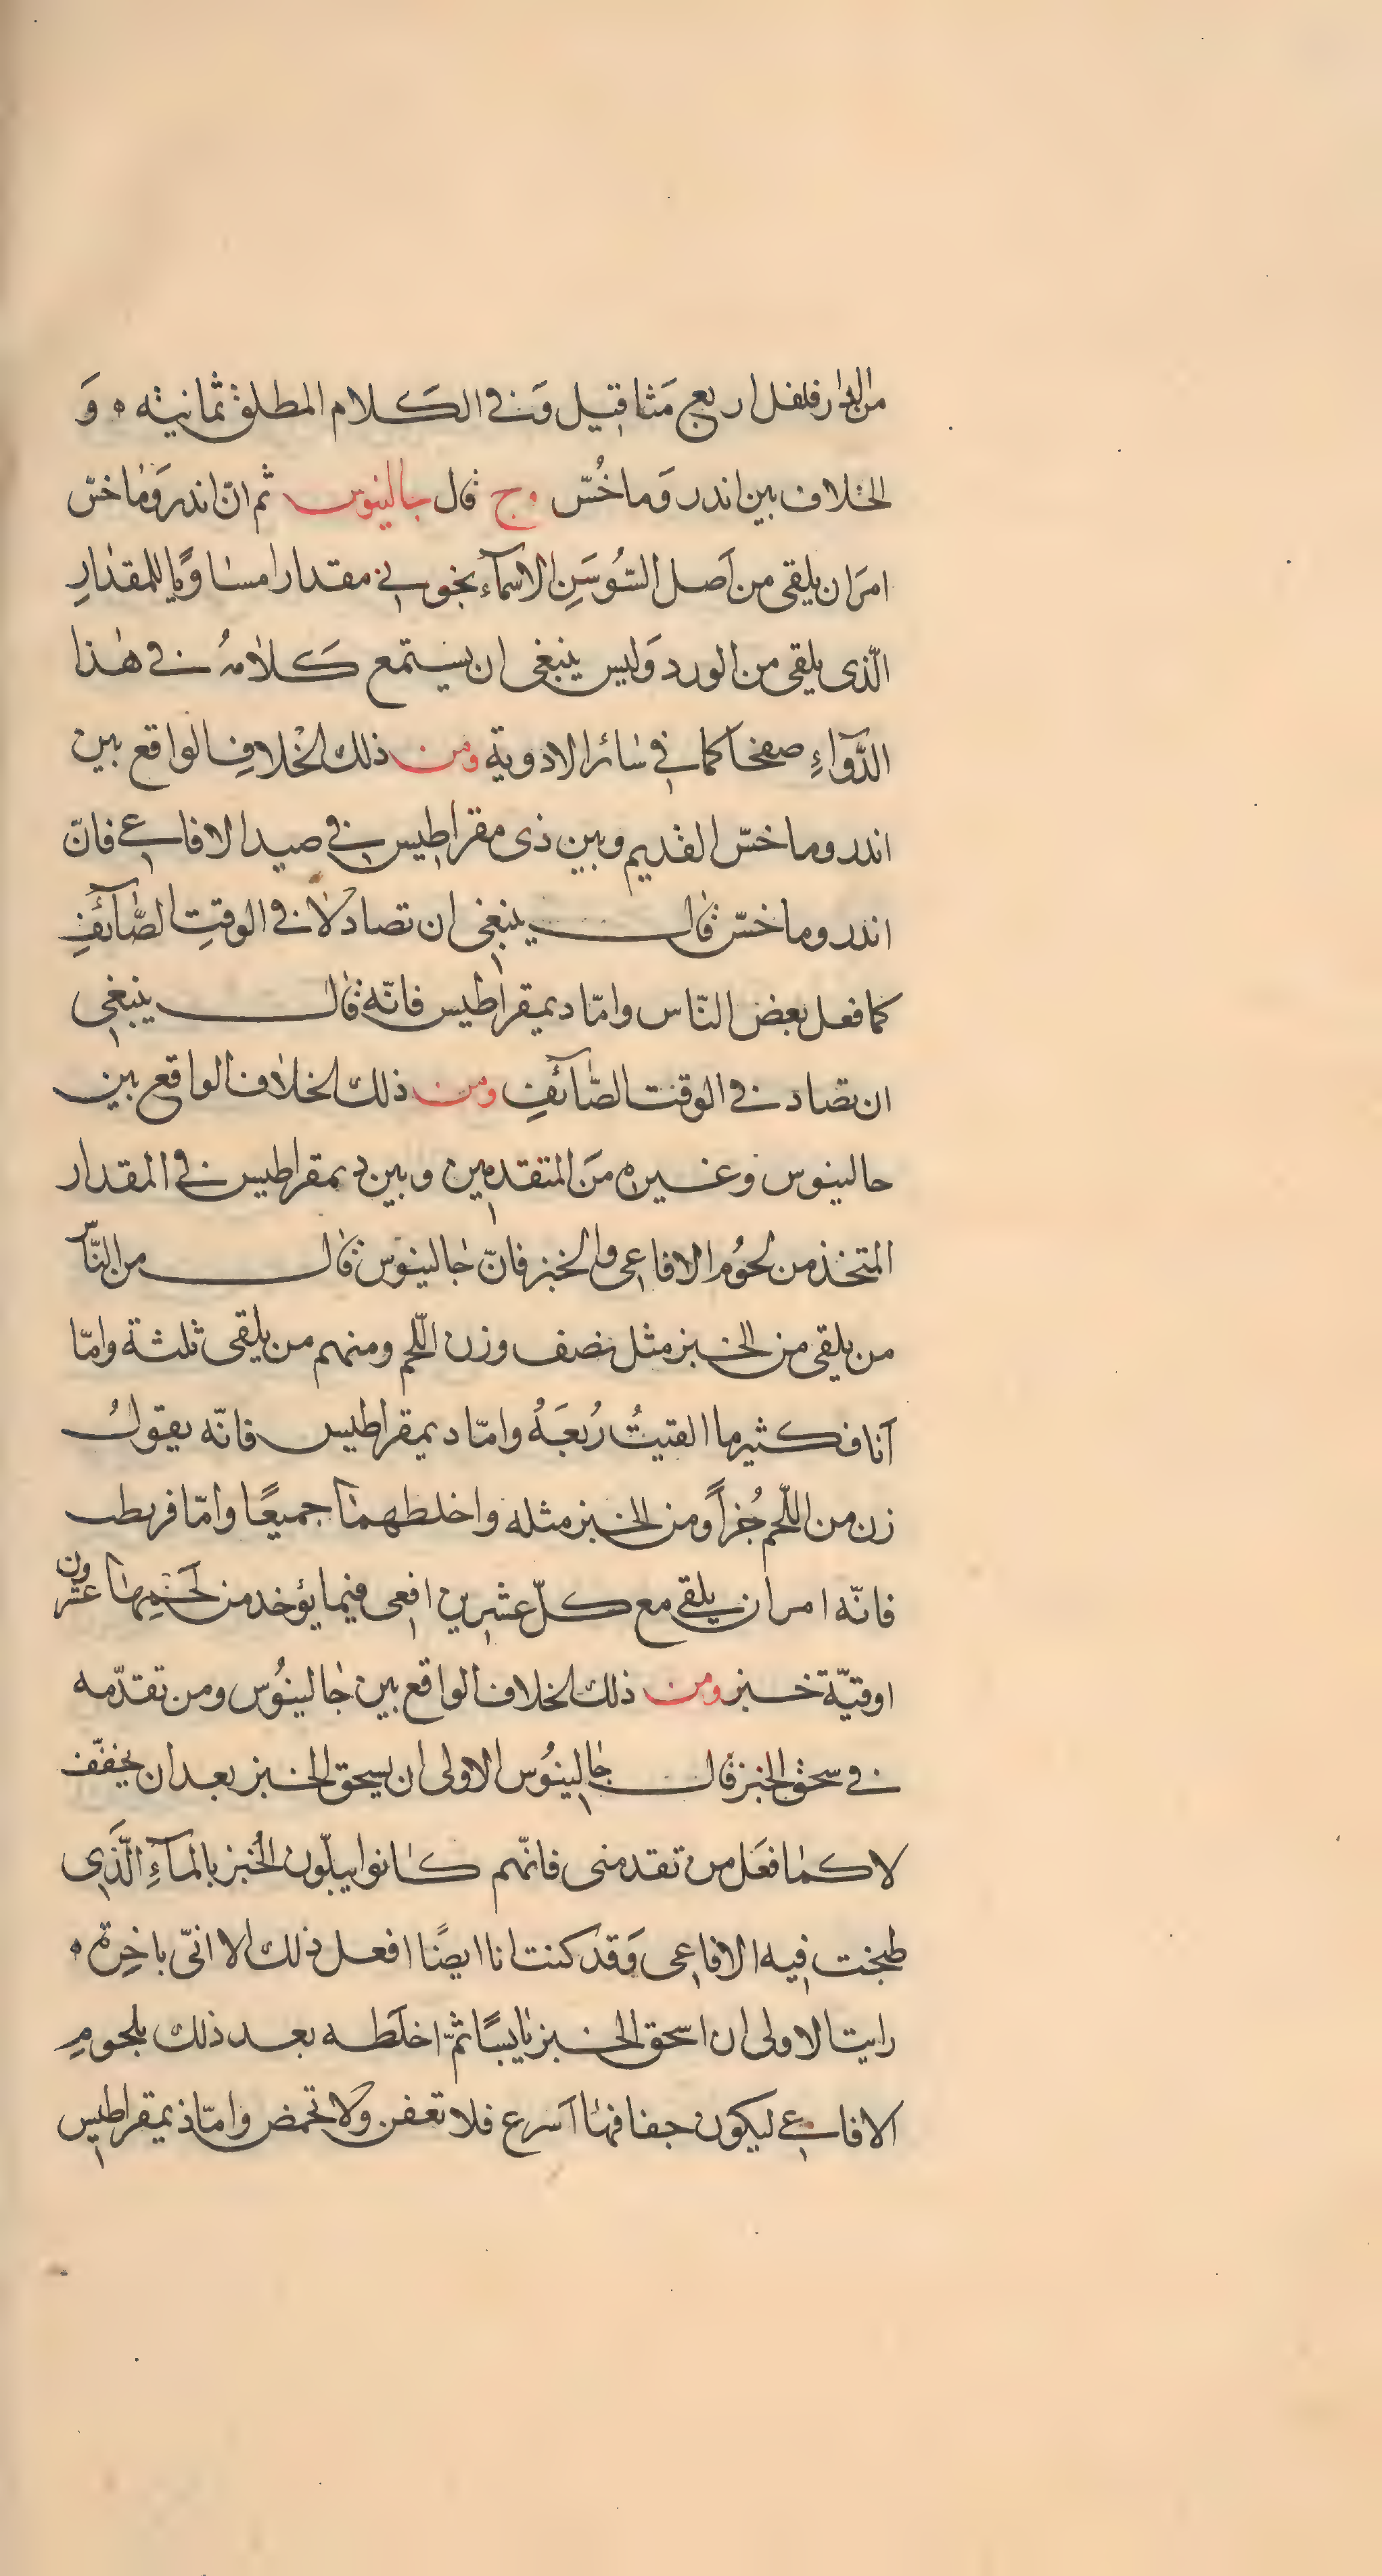 من الدار فلفل اربع مَثاقيل وَفى الكَلام المطلق ثمانية ٥ وَ
الخلاف بين اندر وَماخُسّ ٠ ج قال جالينوس ثم انّ اندروَماخسّ
امرَ ان يلقى من اَصل السُّوسَنِ الاسمآء نجوبى مقدارا مساوًيا للمقدَارِ
الّذى يلقى من الورد وَليس ينبغى ان يستمع كَلامهُ فى هٰذا
الدَّوآءِ صفحا كما فى سَائر الادوية ومن ذلك الخْلافِ الواقع بين
اندروماخسّ القديم وبين ذى مقراطيس فى صيد الافاعى فانّ
اندروماخسّ قال ينبغى ان تصاد لا فى الوقتِ الصَّآئفِ
كما فعل بعض النّاس وامّا ديمقراطيس فانّه قال ينبغى
ان تصاد فى الوقت الصّآئفِ ومن ذلك الخلاف الواقع بين
جالينوس وغيره مَن المتقدمين وبين ديمقراطيس فى المقدار
المتخذ من لحوُم الافاعى والخبز فانّ جالينوس قال من النّاس
من يلقى من الخبز مثل نصف وزن اللّحم ومنهم من يلقى ثلثة وامّا
اَنا فكثيرما القيتُ رُبعَهُ وامّا ديمقراطيس فانّه يقولُ
زن من اللّحم جُزاً ومن الخبز مثله واخلطهمَا جميعًا وامّا فريطب
فانّه امر ان يلقى مع كلّ عشرين افعى فيما يؤخد من لَحمِهَا عشرون
اوقيّة خبز ومن ذلك الخلاف الواقع بين جالينُوس ومن تقدّمه
فى سحق الخبز قال جالينُوس الاولى ان يسحق الخبز بعد ان يجفّف
لا كمَا فعَل من تقدمنى فانّهم كانوا يبلّون الخُبز بالمآءِ الَّذى
طبخت فيه الافاعى وَقد كنت انا ايضًا افعل ذلك الا انّى باخِرة ٥
رايت الاولى ان اسحق الخبز يَابسًا ثمّ اخلَطه بعد ذلك بلحومِ
الافاعى ليكون جفافها اَسرع فلا تعفن وَلا تحمض وامّا ذيمقراطيس